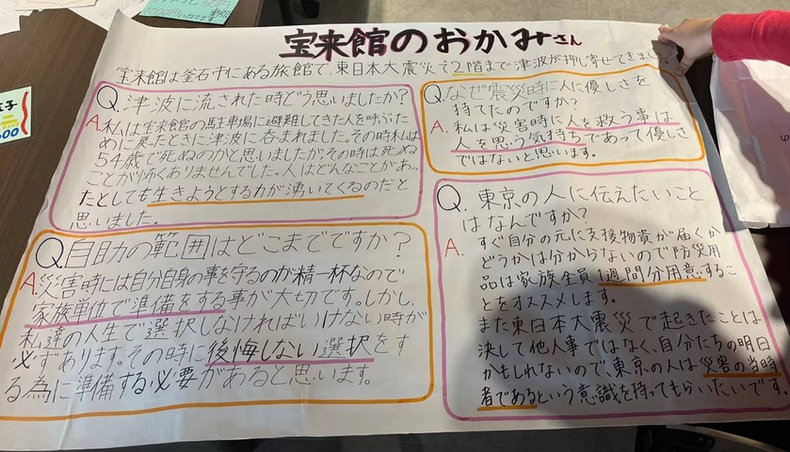 宝来館のおかみさん
宝来館は釜石市にある旅館で、東日本大震災で2階まで津波が押し寄せてきました。
Q.津波に流された時どう思いましたか?
A.私は宝来館の駐車場に避難してきた人を呼ぶた
めに戻ったときに津波に呑まれました。その時私は
54歳で死ぬのかと思いましたがその時は死ぬ
ことが怖くありませんでした。人はどんなことがあっ
たとしても生きようとする力が湧いてくるのだと
思いました。
Q.自助の範囲はどこまでですか?
A.災害時には自分自身の事を守るのが精一杯なので
家族単位で準備をする事が大切です。しかし、
私達の人生で選択しなければいけない時が
必ずあります。その時に後悔しない選択をす
る為に準備する必要があると思います。
Q.なぜ震災時に人に優しさを
持てたのですか?
A.私は災害時に人を救う事は
人を思う気持ちであって優しさ
ではないと思います。
Q.東京の人に伝えたいこと
はなんですか?
A.すぐ自分の元に支援物資が届くか
どうかは分からないので防災用
品は家族全員1週間分用意するこ
とをオススメします。
また東日本大震災で起きたことは
決して他人事ではなく、自分たちの明日
かもしれないので、東京の人は災害の当時
者であるという意識を持ってもらいたいです。